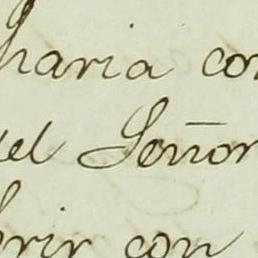 haria con
del Señor
brir con